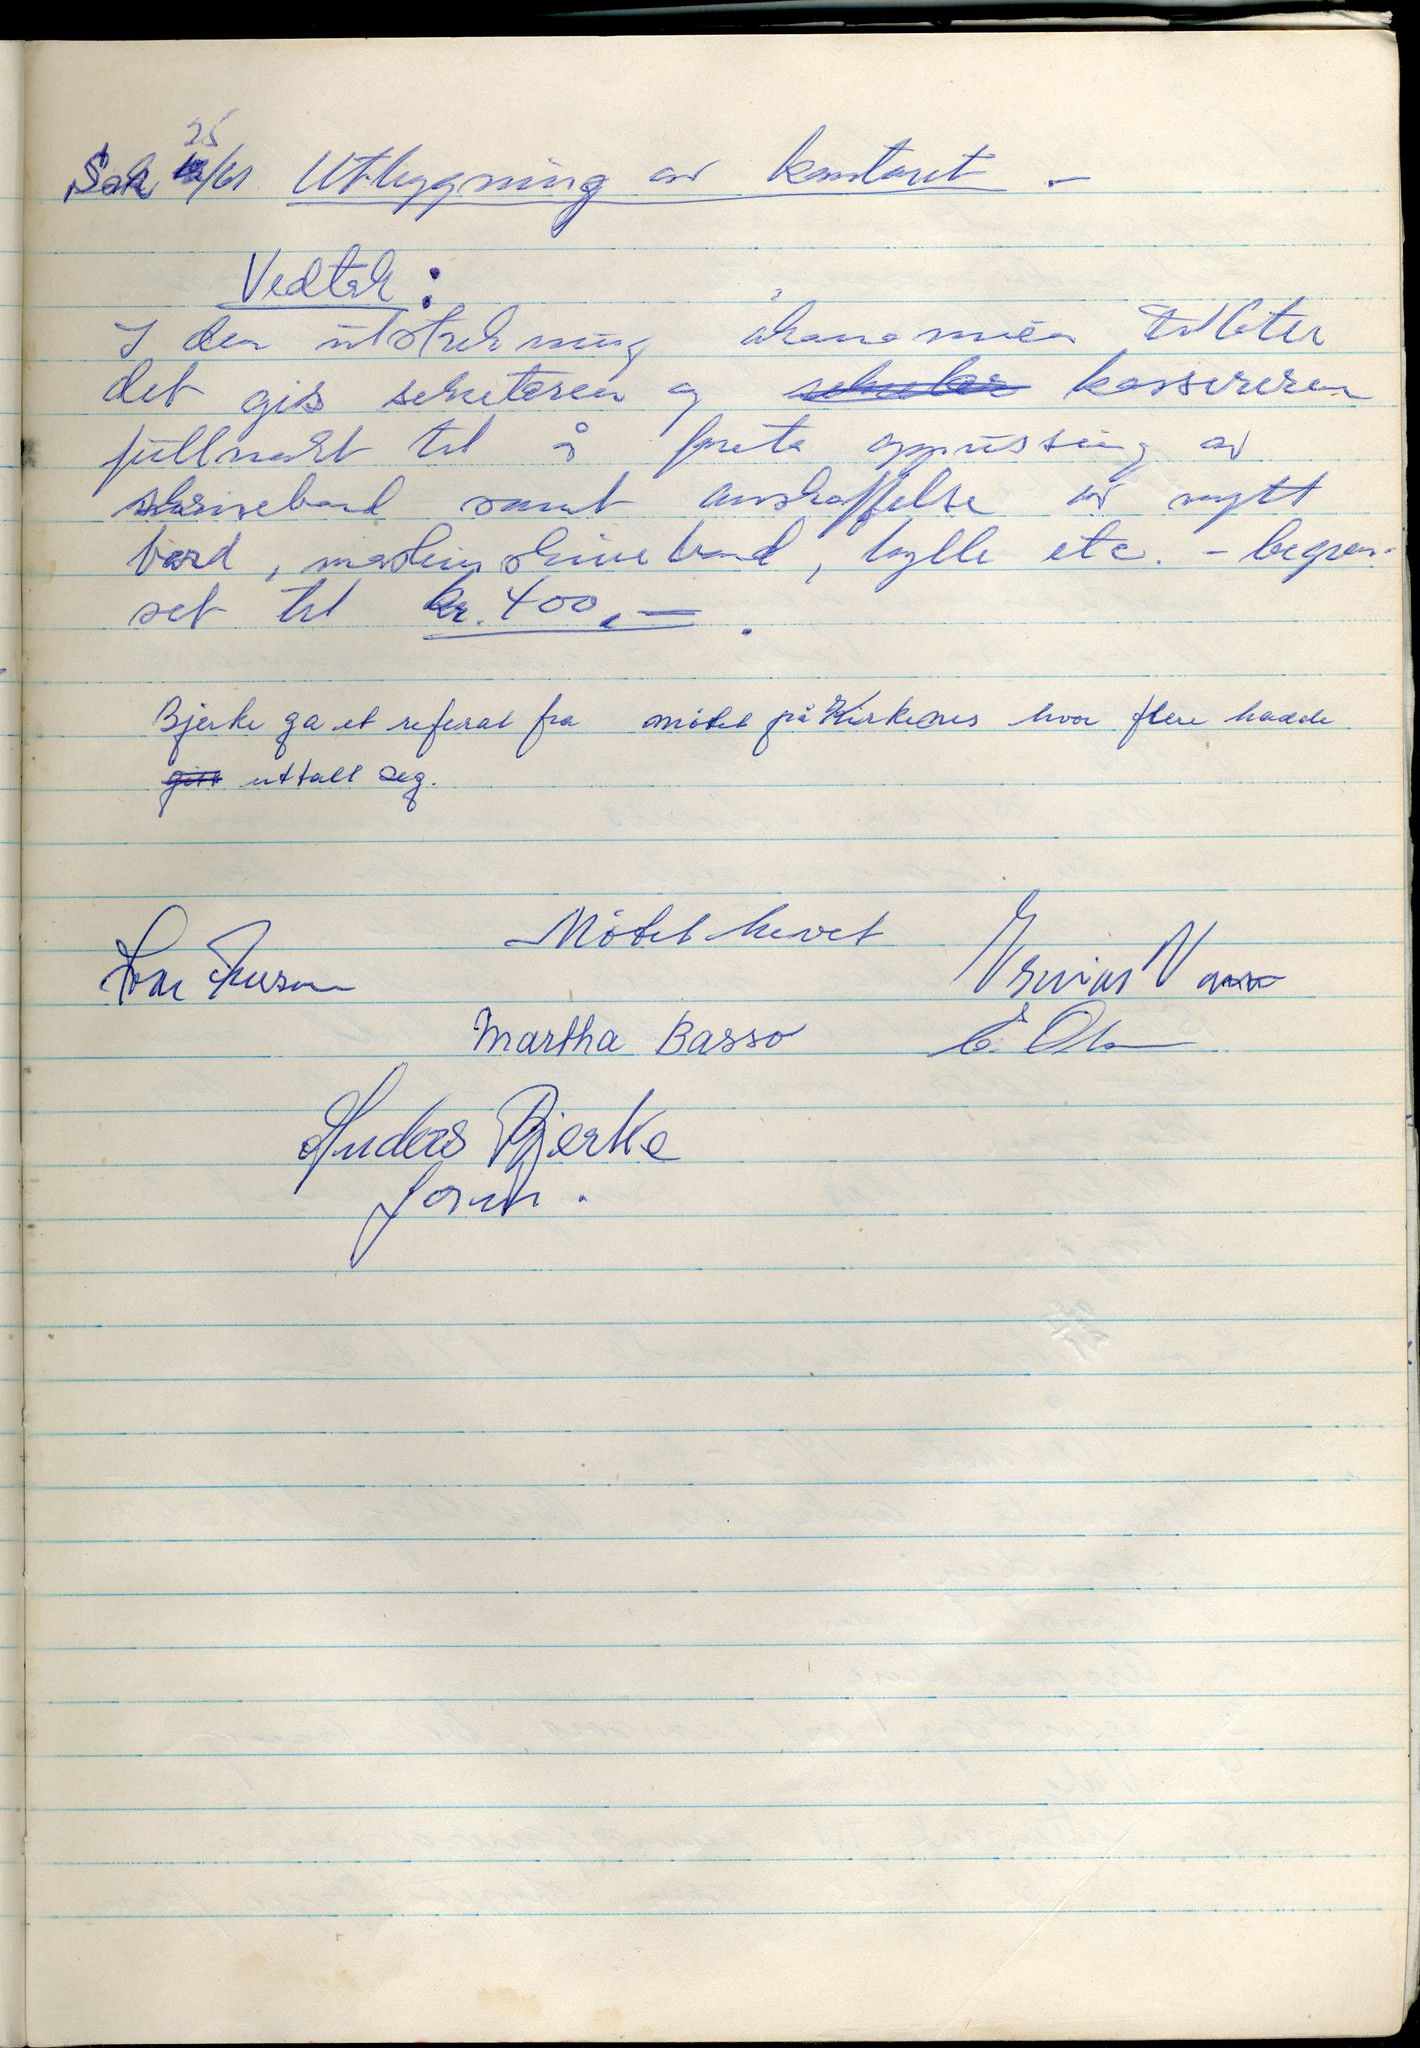 Sak 25/61 Utbygning av kontoret. -
Vedtak:
I den utstrekning økonomien tillater
det gis sekretæren og kassereren
fullmakt til å foreta oppussing av
skrivebord samt anskaffelse av nytt
bord, maskinskrivebord, hylle etc. - begren-
set til kr. 400,-.
Bjerke ga et referat fra møtet på Kirkenes hvor flere hadde
uttalt seg.
Møtet hevet
Martha Basso E. Olsen
Anders Bjerke
form.